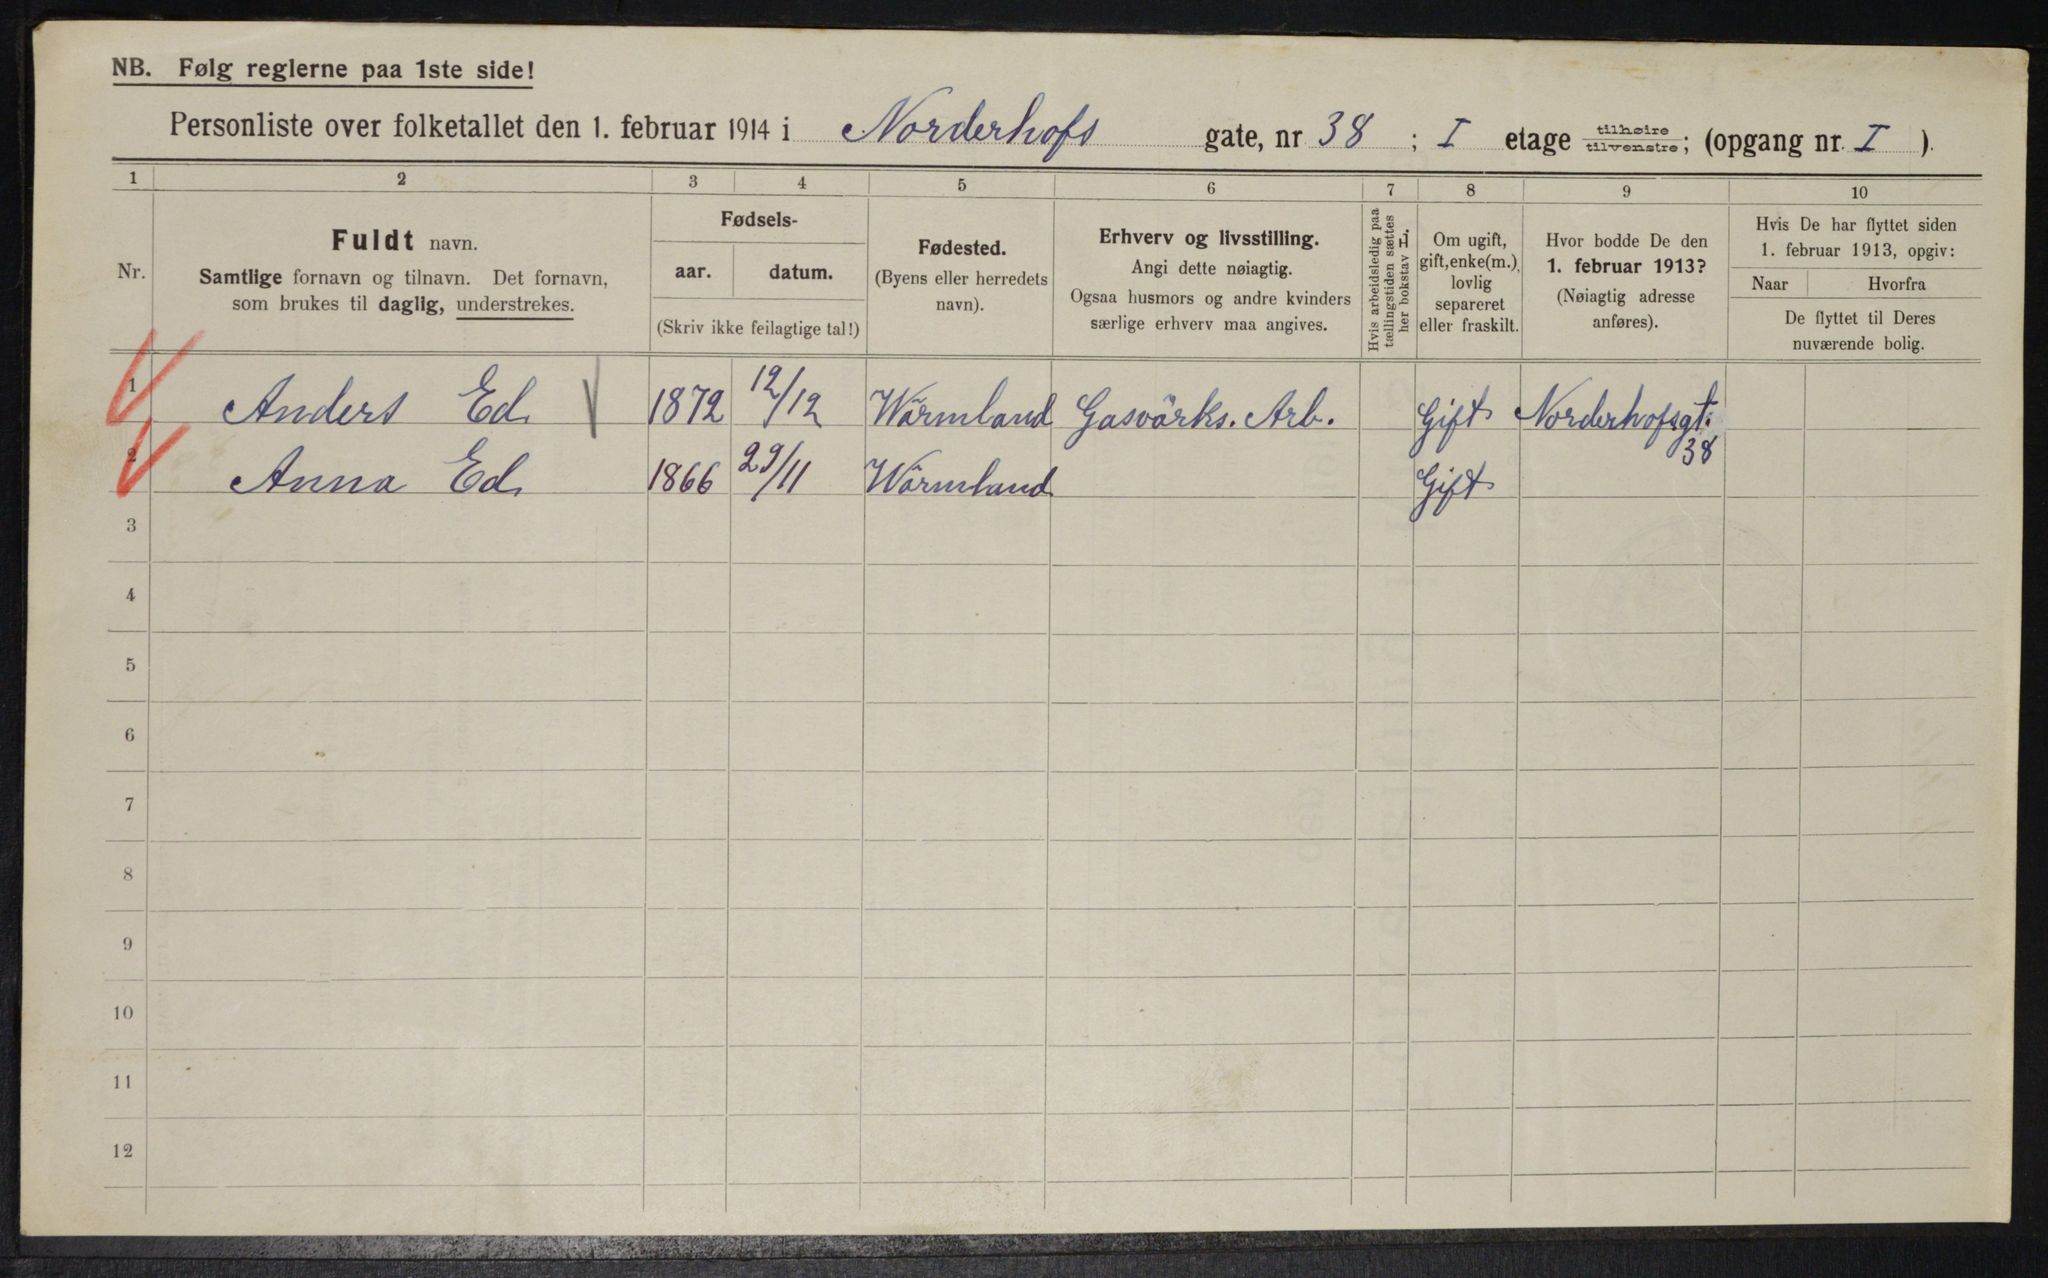 NB. Følg reglerne paa 1ste side!
Personliste over folketallet den 1. februar 1914 i Norderhofs gate, nr 38 ; I etage tilhøire tilvenstre; (opgang nr. I ).
1 2 3 4 5 6 7 8 9 10
Nr.
Fuldt navn.
Samtlige fornavn og tilnavn. Det fornavn,
som brukes til daglig, understrekes.
Fødsels-
aar. datum.
(Skriv ikke feilagtige tal!)
Fødested.
(Byens eller herredets
navn).
Erhverv og livsstilling.
Angi dette nøiagtig.
Ogsaa husmors og andre kvinders
særlige erhverv maa angives.
Hvis arbeidsledig paa
tællingstiden sættes
her bokstav L.
Om ugift,
gift, enke(m.),
lovlig
separeret
eller fraskilt.
Hvor bodde De den
1. februar 1913?
(Nøiagtig adresse
anføres).
Hvis De har flyttet siden
1. februar 1913, opgiv:
Naar Hvorfra
De flyttet til Deres
nuværende bolig.
1 Anders Ed 1872 12/12 Wärmland Gasvärks. Arb. Gift Norderhofsgt:
38
2 Anna Ed 1866 29/11 Wärmland Gift
3
4
5
6
7
8
9
10
11
12